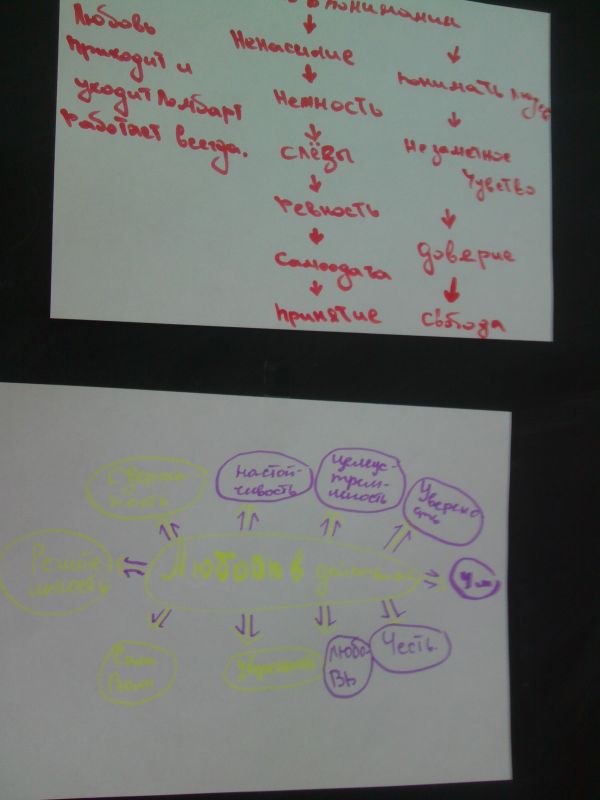 Любовь
приходит и
уходит Ломбарт
работает всегда.
понимании
Ненасилие
Нежность
слёзы
ревность
самоодата
принятие
понимать
Незаметное
чувство
доверие
свобода
настой-
чивость
целеус-
трем-
лёность
Уверено
сть
Решите
льность
Любовь в действии
ум
Сила
Воли
Любо-
вь
Честь.